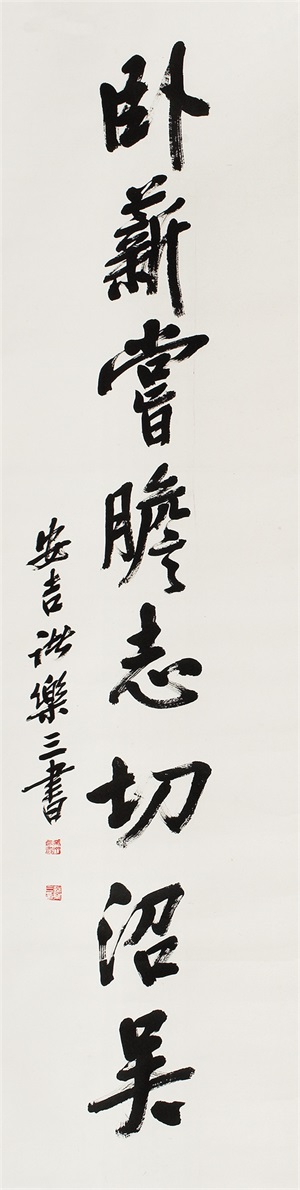 卧薪嘗膽志切沼吴
安吉諸樂三書